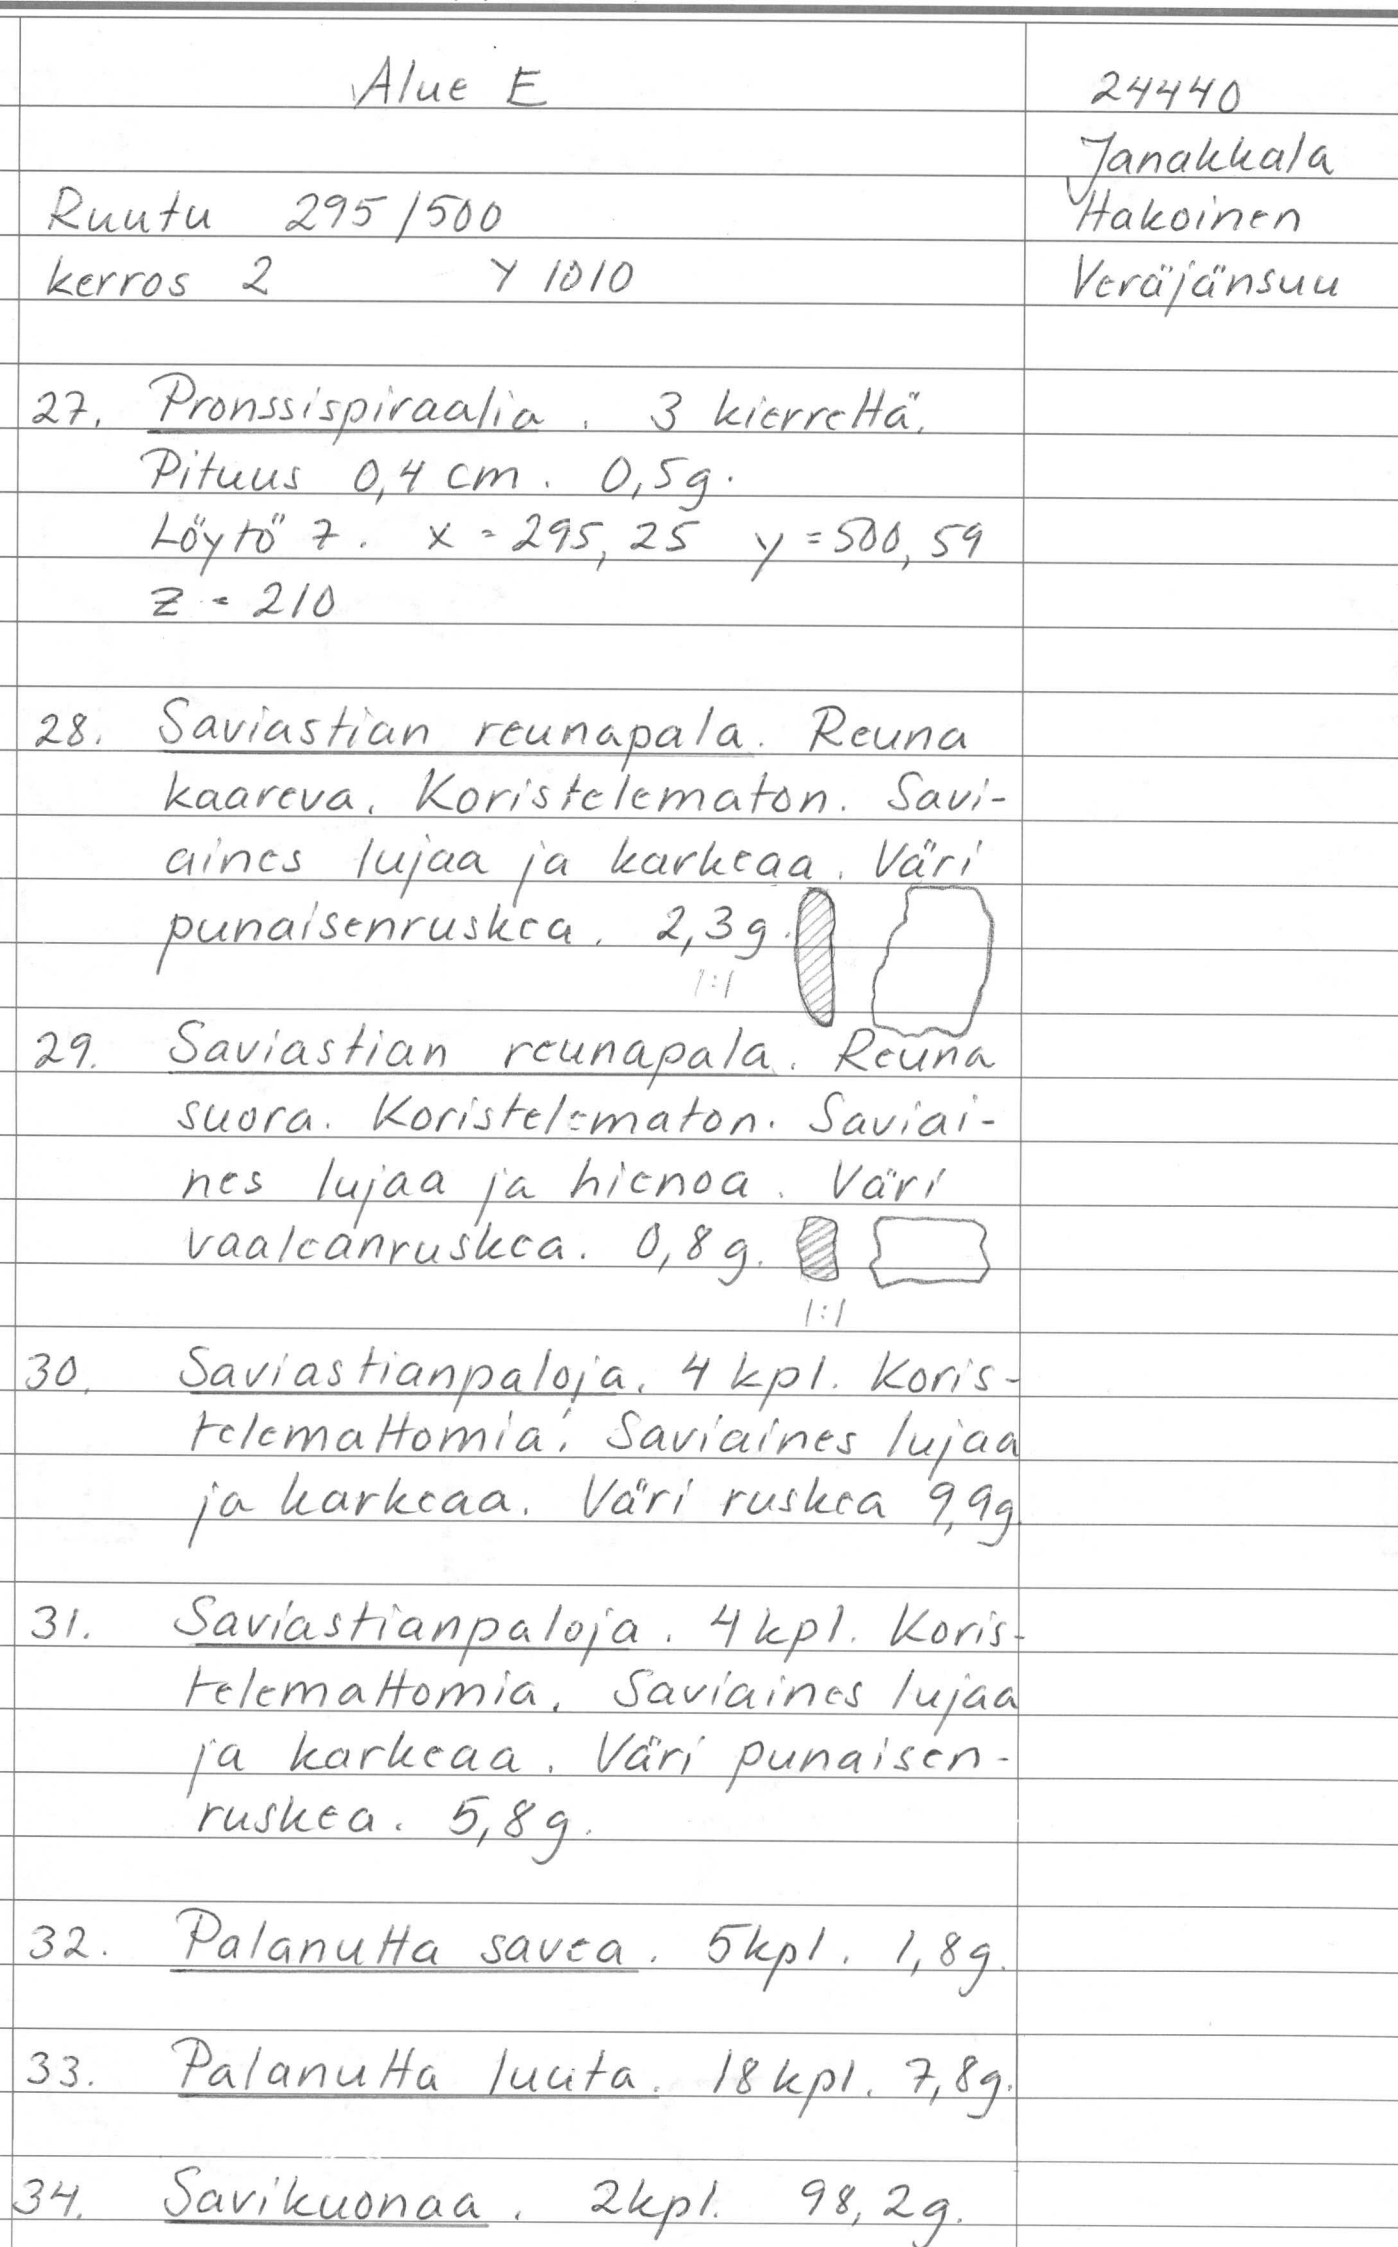 Alue E
24440
Janakkala
Hakoinen
Veräjänsuu
Ruutu 295/500
kerros 2 Y 1010
27. Pronssispiraalia. 3 kierrettä.
Pituus 0,4 cm. 0,5g.
Löytö 7. x = 295,25 y = 500,59
z = 210
28. Saviastian reunapala. Reuna
kaareva. Koristelematon. Savi-
aines lujaa ja karkeaa. Väri
punaisenruskea. 2,3g.
1:1
29. Saviastian reunapala. Reuna
suora. Koristelematon. Saviai-
nes lujaa ja hienoa. Väri
vaaleanruskea. 0,8g.
1:1
30. Saviastianpaloja. 4 kpl. Koris-
telemattomia. Saviaines lujaa
ja karkeaa. Väri ruskea 9,9g
31. Saviastianpaloja. 4 kpl. Koris-
telemattomia. Saviaines lujaa
ja karkeaa. Väri punaisen-
ruskea. 5,8g.
32. Palanutta savea. 5 kpl. 1,8g.
33. Palanutta luuta. 18 kpl. 7,8g.
34. Savikuonaa. 2 kpl. 98,2g.